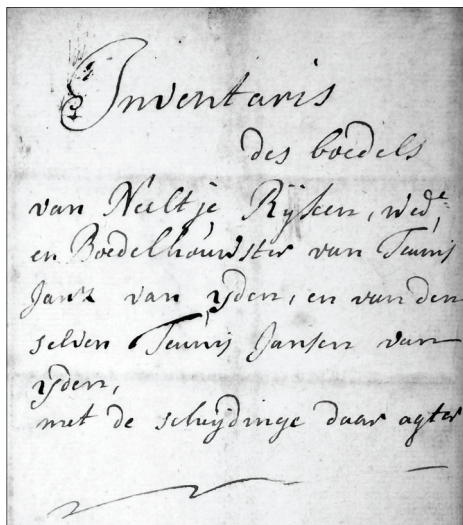 Inventaris
des boedels
van Neeltje Rijsen, wed.e
en Boedelhoudster van Teunis
Jansz van ijden, en van den
selven Teunis Jansen van
ijden,
met de scheijdinge daar agter